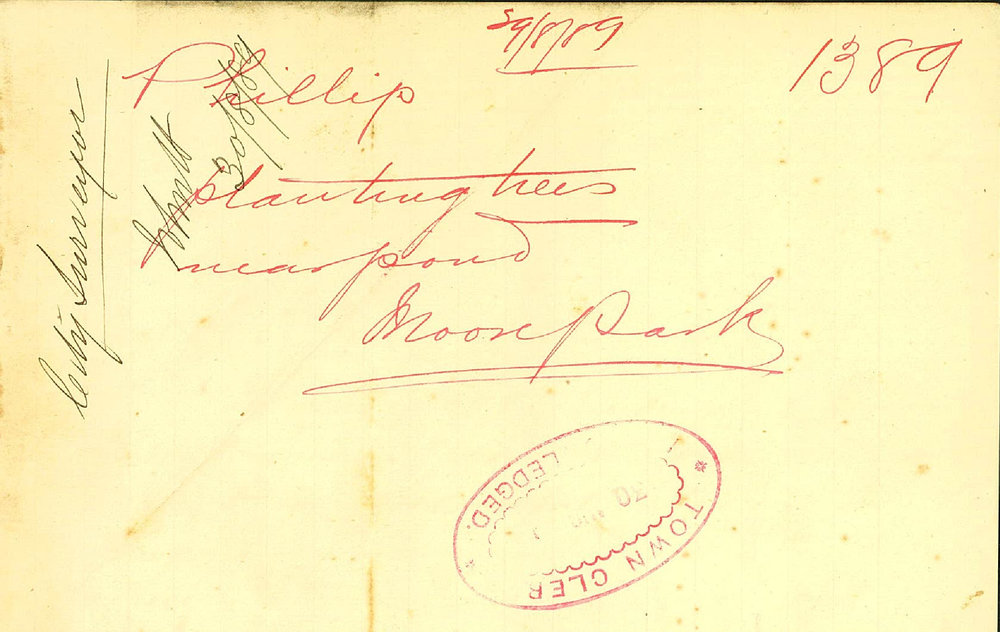 29/8/89
1389
Phillip
planting trees
near pond
Moore Park
City Surveyor
30/8/89
TOWN CLER
LEDGED.
30